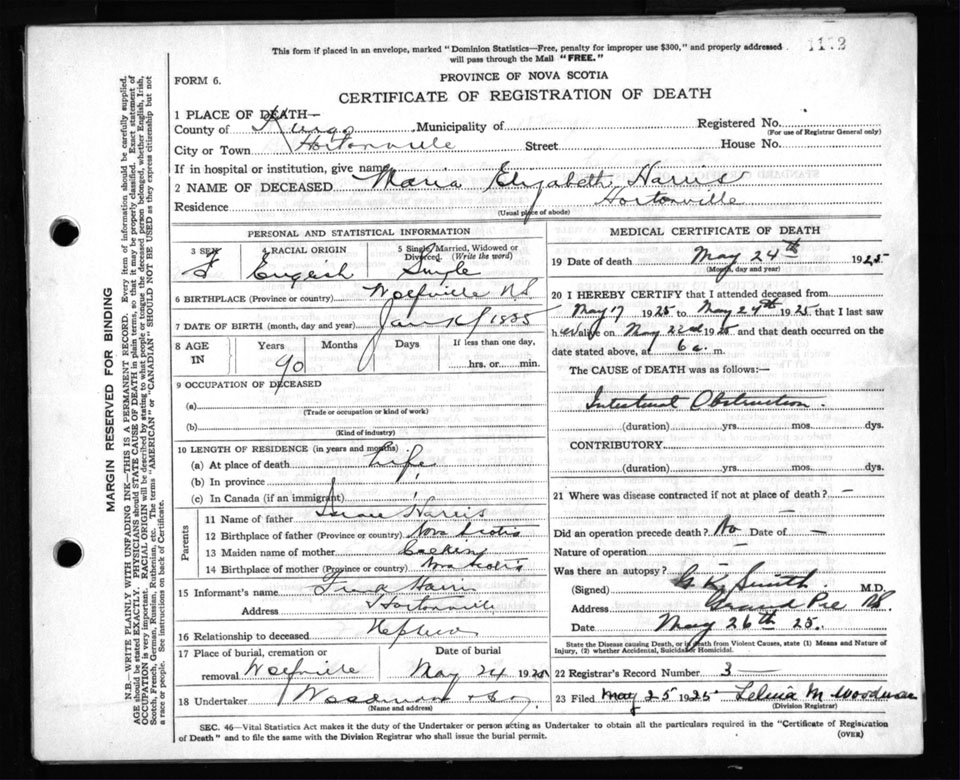 1172
This form if placed in an envelope, marked "Dominion Statistics—Free, penalty for improper use $300," and properly addressed
will pass through the Mail "FREE."
FORM 6.
PROVINCE OF NOVA SCOTIA
CERTIFICATE OF REGISTRATION OF DEATH
1 PLACE OF DEATH—
County of Kings Municipality of Registered No.
(For use of Registrar General only)
City or Town Hortonville Street House No.
If in hospital or institution, give name
2 NAME OF DECEASED Maria Elizabeth Harris
Residence Hortonville
(Usual place of abode)
PERSONAL AND STATISTICAL INFORMATION
3 SEX F
4 RACIAL ORIGIN English
5 Single, Married, Widowed or Divorced. (Write the word) Single
6 BIRTHPLACE (Province or country) Wolfville N.S.
7 DATE OF BIRTH (month, day and year) Jan 1835
8 AGE IN Years 90 Months Days If less than one day, hrs. or min.
9 OCCUPATION OF DECEASED
(a)
(Trade or occupation or kind of work)
(b)
(Kind of industry)
10 LENGTH OF RESIDENCE (in years and months)
(a) At place of death Life
(b) In province
(c) In Canada (if an immigrant)
Parents
11 Name of father Harris
12 Birthplace of father (Province or country) Nova Scotia
13 Maiden name of mother
14 Birthplace of mother (Province or country) Nova Scotia
15 Informant's name Fred Harris
Address Hortonville
16 Relationship to deceased Nephew
17 Place of burial, cremation or removal Wolfville
Date of burial May 24 192
18 Undertaker Woodman & Co.
(Name and address)
MEDICAL CERTIFICATE OF DEATH
19 Date of death May 24th 1925
(Month, day and year)
20 I HEREBY CERTIFY that I attended deceased from
May 17 1925 to May 24th 1925 that I last saw
her alive on May 22nd 1925 and that death occurred on the
date stated above, at 6 a. m.
The CAUSE of DEATH was as follows:—
Intestinal Obstruction.
(duration) yrs. mos. dys.
CONTRIBUTORY
(duration) yrs. mos. dys.
21 Where was disease contracted if not at place of death? —
Did an operation precede death? No Date of —
Nature of operation —
Was there an autopsy? —
(Signed) G. K. Smith M.D.
Address Grand Pre NS.
Date May 26th 25.
State the Disease causing Death, or, in Death from Violent Causes, state (1) Means and Nature of
Injury, (2) whether Accidental, Suicidal or Homicidal.
22 Registrar's Record Number 3 —
23 Filed May 25 1925 M. Woodman
(Division Registrar)
SEC. 46—Vital Statistics Act makes it the duty of the Undertaker or person acting as Undertaker to obtain all the particulars required in the "Certificate of Registration
of Death" and to file the same with the Division Registrar who shall issue the burial permit.
(OVER)
MARGIN RESERVED FOR BINDING
N.B.—WRITE PLAINLY WITH UNFADING INK—THIS IS A PERMANENT RECORD. Every item of information should be carefully supplied.
AGE should be stated EXACTLY. PHYSICIANS should STATE CAUSE OF DEATH in plain terms, so that it may be properly classified. Exact statement of
OCCUPATION is very important. RACIAL ORIGIN will be described by stating to what people or tongue the deceased person belonged, whether English, Irish,
Scotch, French, German, Russian, Ruthenian, etc. The terms "AMERICAN" or "CANADIAN" SHOULD NOT BE USED as they express citizenship but not
a race or people. See instructions on back of Certificate.